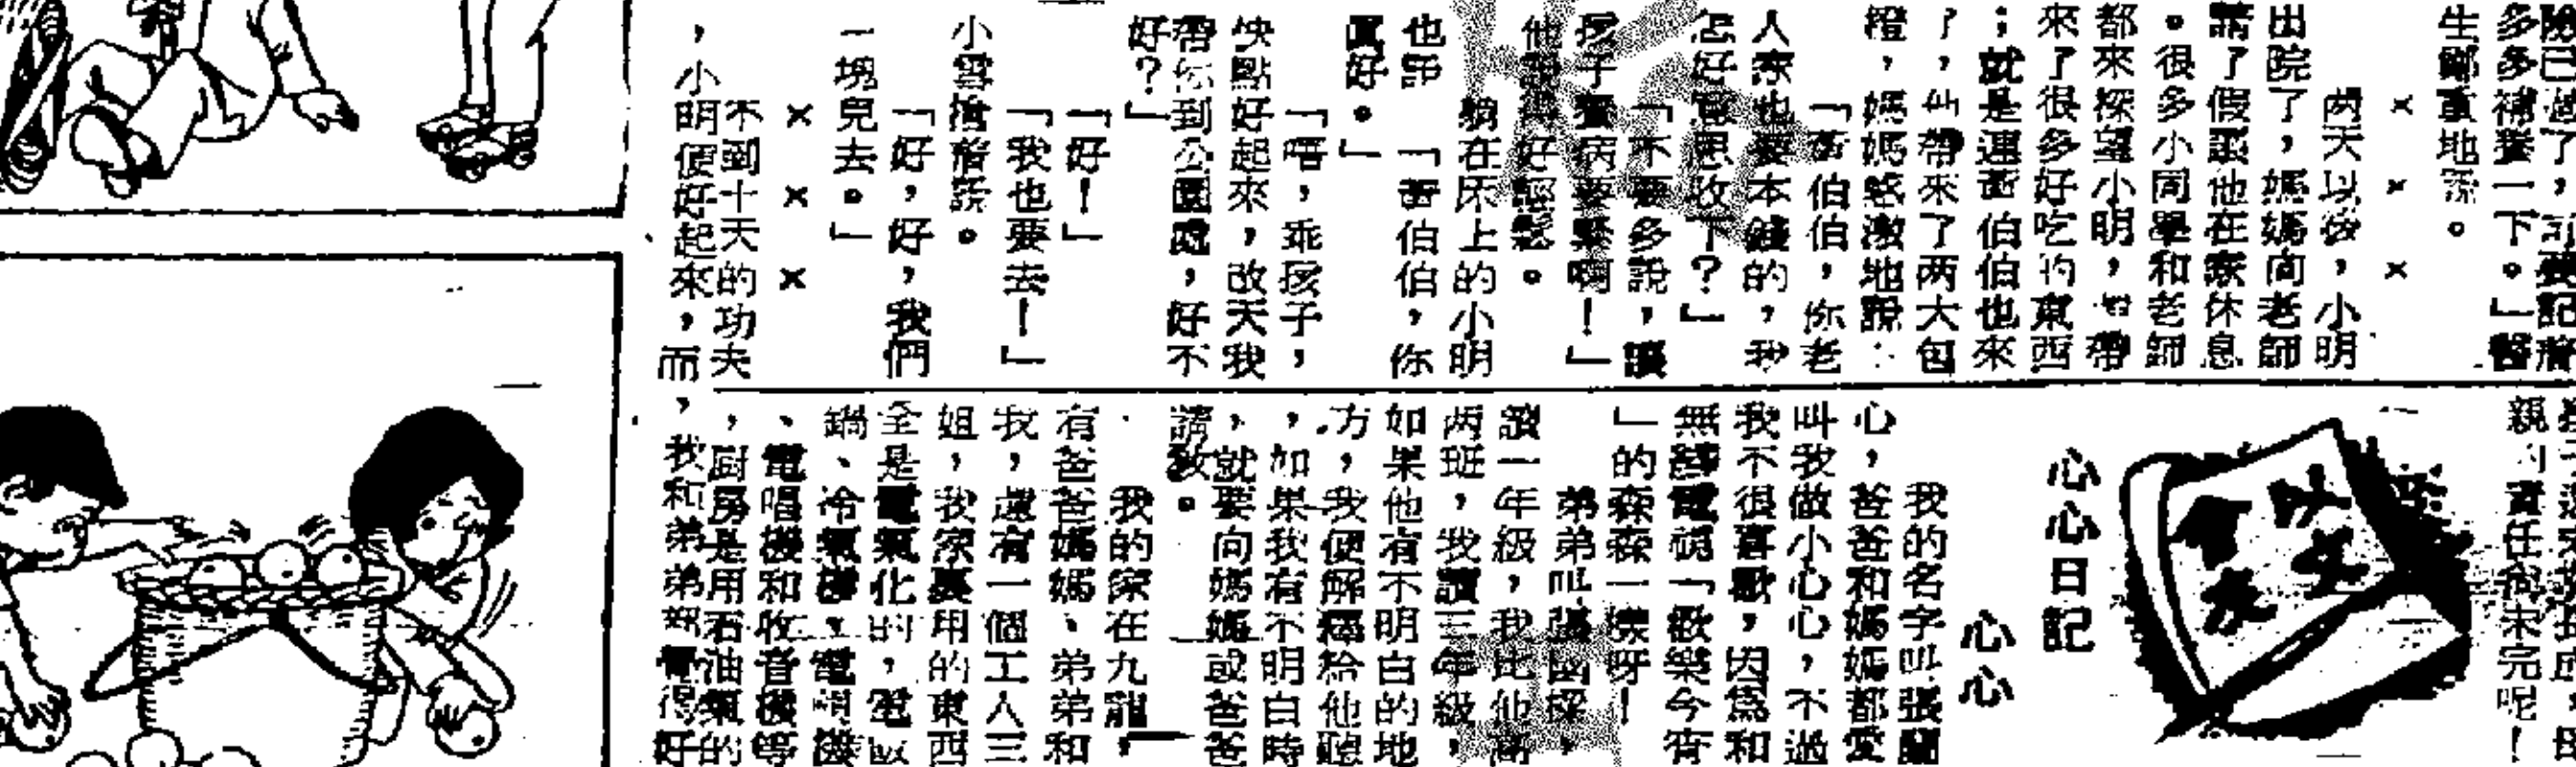 多多補養一下。」醫
生鄭重地說。
×　×　×
两天以後，小明
出院了，媽媽向老師
請了假讓他在家休息
。很多小同學和老師
都來探望小明，帶
來了很多好吃的東西
；就是連黃伯伯也來
了，他帶來了两大包
橙，媽媽感激地說：
「黃伯伯，你老
人家也要本錢的，我
怎好意思收下？」
「不要多說，讓
孩子養病要緊啊！」
他說得好輕鬆。
躺在床上的小明
也說「黃伯伯，你
眞好。」
「唔，乖孩子，
快點好起來，改天我
帶你到公園處，好不
好？」
「好！」
「我也要去！」
小雲搶着說。
「好，好，我們
一塊兒去。」
×　×　×
不到十天的功夫
，小明便好起來，而
親的責任尚未完呢！
心心日記
心心
我的名字叫張蘭
心，爸爸和媽媽都愛
叫我做小心心，不過
我不很喜歡，因爲和
無綫電視「歡樂今宵
」的森森一樣呀！
弟弟叫張國樑，
讀一年級，我比他高
两班，我讀三年級，
如果他有不明白的地
方，我便解釋給他聽
，如果我有不明白時
，就要向媽媽或爸爸
請教。
我的家在九龍，
有爸爸媽媽、弟弟和
我，還有一個工人三
姐，我家裏用的東西
全是電氣化的，電飯
鍋、冷氣機、電視機
、電唱機和收音機等
，厨房是用石油氣的
，我和弟弟都覺得好